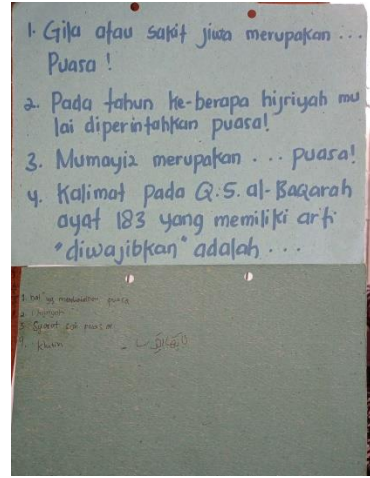 1. Gila atau sakit jiwa merupakan ...
Puasa !
2. Pada tahun ke-berapa hijriyah mu
lai diperintahkan puasa!
3. Mumayiz merupakan ... puasa!
4. Kalimat pada Q.S. al-Baqarah
ayat 183 yang memiliki arti
"diwajibkan" adalah ...
1. hal yg membatalkan puasa
2. hijriyah
3. Syarat sah puasa
4. kutiba